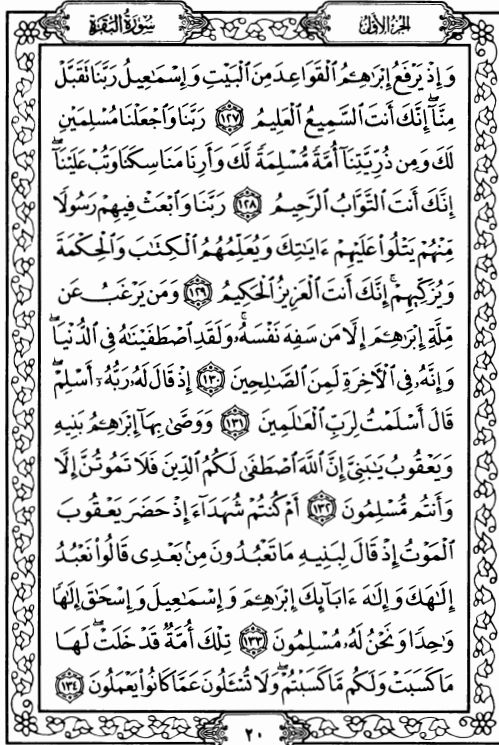 سُورَةُ البَقَرَة
الجزء الأوّل
وَإِذْ يَرْفَعُ إِبْرَٰهِـۧمُ ٱلْقَوَاعِدَ مِنَ ٱلْبَيْتِ وَإِسْمَـٰعِيلُ رَبَّنَا تَقَبَّلْ
مِنَّآ ۖ إِنَّكَ أَنتَ ٱلسَّمِيعُ ٱلْعَلِيمُ ١٢٧ رَبَّنَا وَٱجْعَلْنَا مُسْلِمَيْنِ
لَكَ وَمِن ذُرِّيَّتِنَآ أُمَّةً مُّسْلِمَةً لَّكَ وَأَرِنَا مَنَاسِكَنَا وَتُبْ عَلَيْنَآ ۖ
إِنَّكَ أَنتَ ٱلتَّوَّابُ ٱلرَّحِيمُ ١٢٨ رَبَّنَا وَٱبْعَثْ فِيهِمْ رَسُولًا
مِّنْهُمْ يَتْلُوا۟ عَلَيْهِمْ ءَايَـٰتِكَ وَيُعَلِّمُهُمُ ٱلْكِتَـٰبَ وَٱلْحِكْمَةَ
وَيُزَكِّيهِمْ ۚ إِنَّكَ أَنتَ ٱلْعَزِيزُ ٱلْحَكِيمُ ١٢٩ وَمَن يَرْغَبُ عَن
مِّلَّةِ إِبْرَٰهِـۧمَ إِلَّا مَن سَفِهَ نَفْسَهُۥ ۚ وَلَقَدِ ٱصْطَفَيْنَـٰهُ فِى ٱلدُّنْيَا ۖ
وَإِنَّهُۥ فِى ٱلْـَٔاخِرَةِ لَمِنَ ٱلصَّـٰلِحِينَ ١٣٠ إِذْ قَالَ لَهُۥ رَبُّهُۥٓ أَسْلِمْ ۖ
قَالَ أَسْلَمْتُ لِرَبِّ ٱلْعَـٰلَمِينَ ١٣١ وَوَصَّىٰ بِهَآ إِبْرَٰهِـۧمُ بَنِيهِ
وَيَعْقُوبُ يَـٰبَنِىَّ إِنَّ ٱللَّهَ ٱصْطَفَىٰ لَكُمُ ٱلدِّينَ فَلَا تَمُوتُنَّ إِلَّا
وَأَنتُم مُّسْلِمُونَ ١٣٢ أَمْ كُنتُمْ شُهَدَآءَ إِذْ حَضَرَ يَعْقُوبَ
ٱلْمَوْتُ إِذْ قَالَ لِبَنِيهِ مَا تَعْبُدُونَ مِنۢ بَعْدِى قَالُوا۟ نَعْبُدُ
إِلَـٰهَكَ وَإِلَـٰهَ ءَابَآئِكَ إِبْرَٰهِـۧمَ وَإِسْمَـٰعِيلَ وَإِسْحَـٰقَ إِلَـٰهًا
وَٰحِدًا وَنَحْنُ لَهُۥ مُسْلِمُونَ ١٣٣ تِلْكَ أُمَّةٌ قَدْ خَلَتْ ۖ لَهَا
مَا كَسَبَتْ وَلَكُم مَّا كَسَبْتُمْ ۖ وَلَا تُسْـَٔلُونَ عَمَّا كَانُوا۟ يَعْمَلُونَ ١٣٤
٢٠